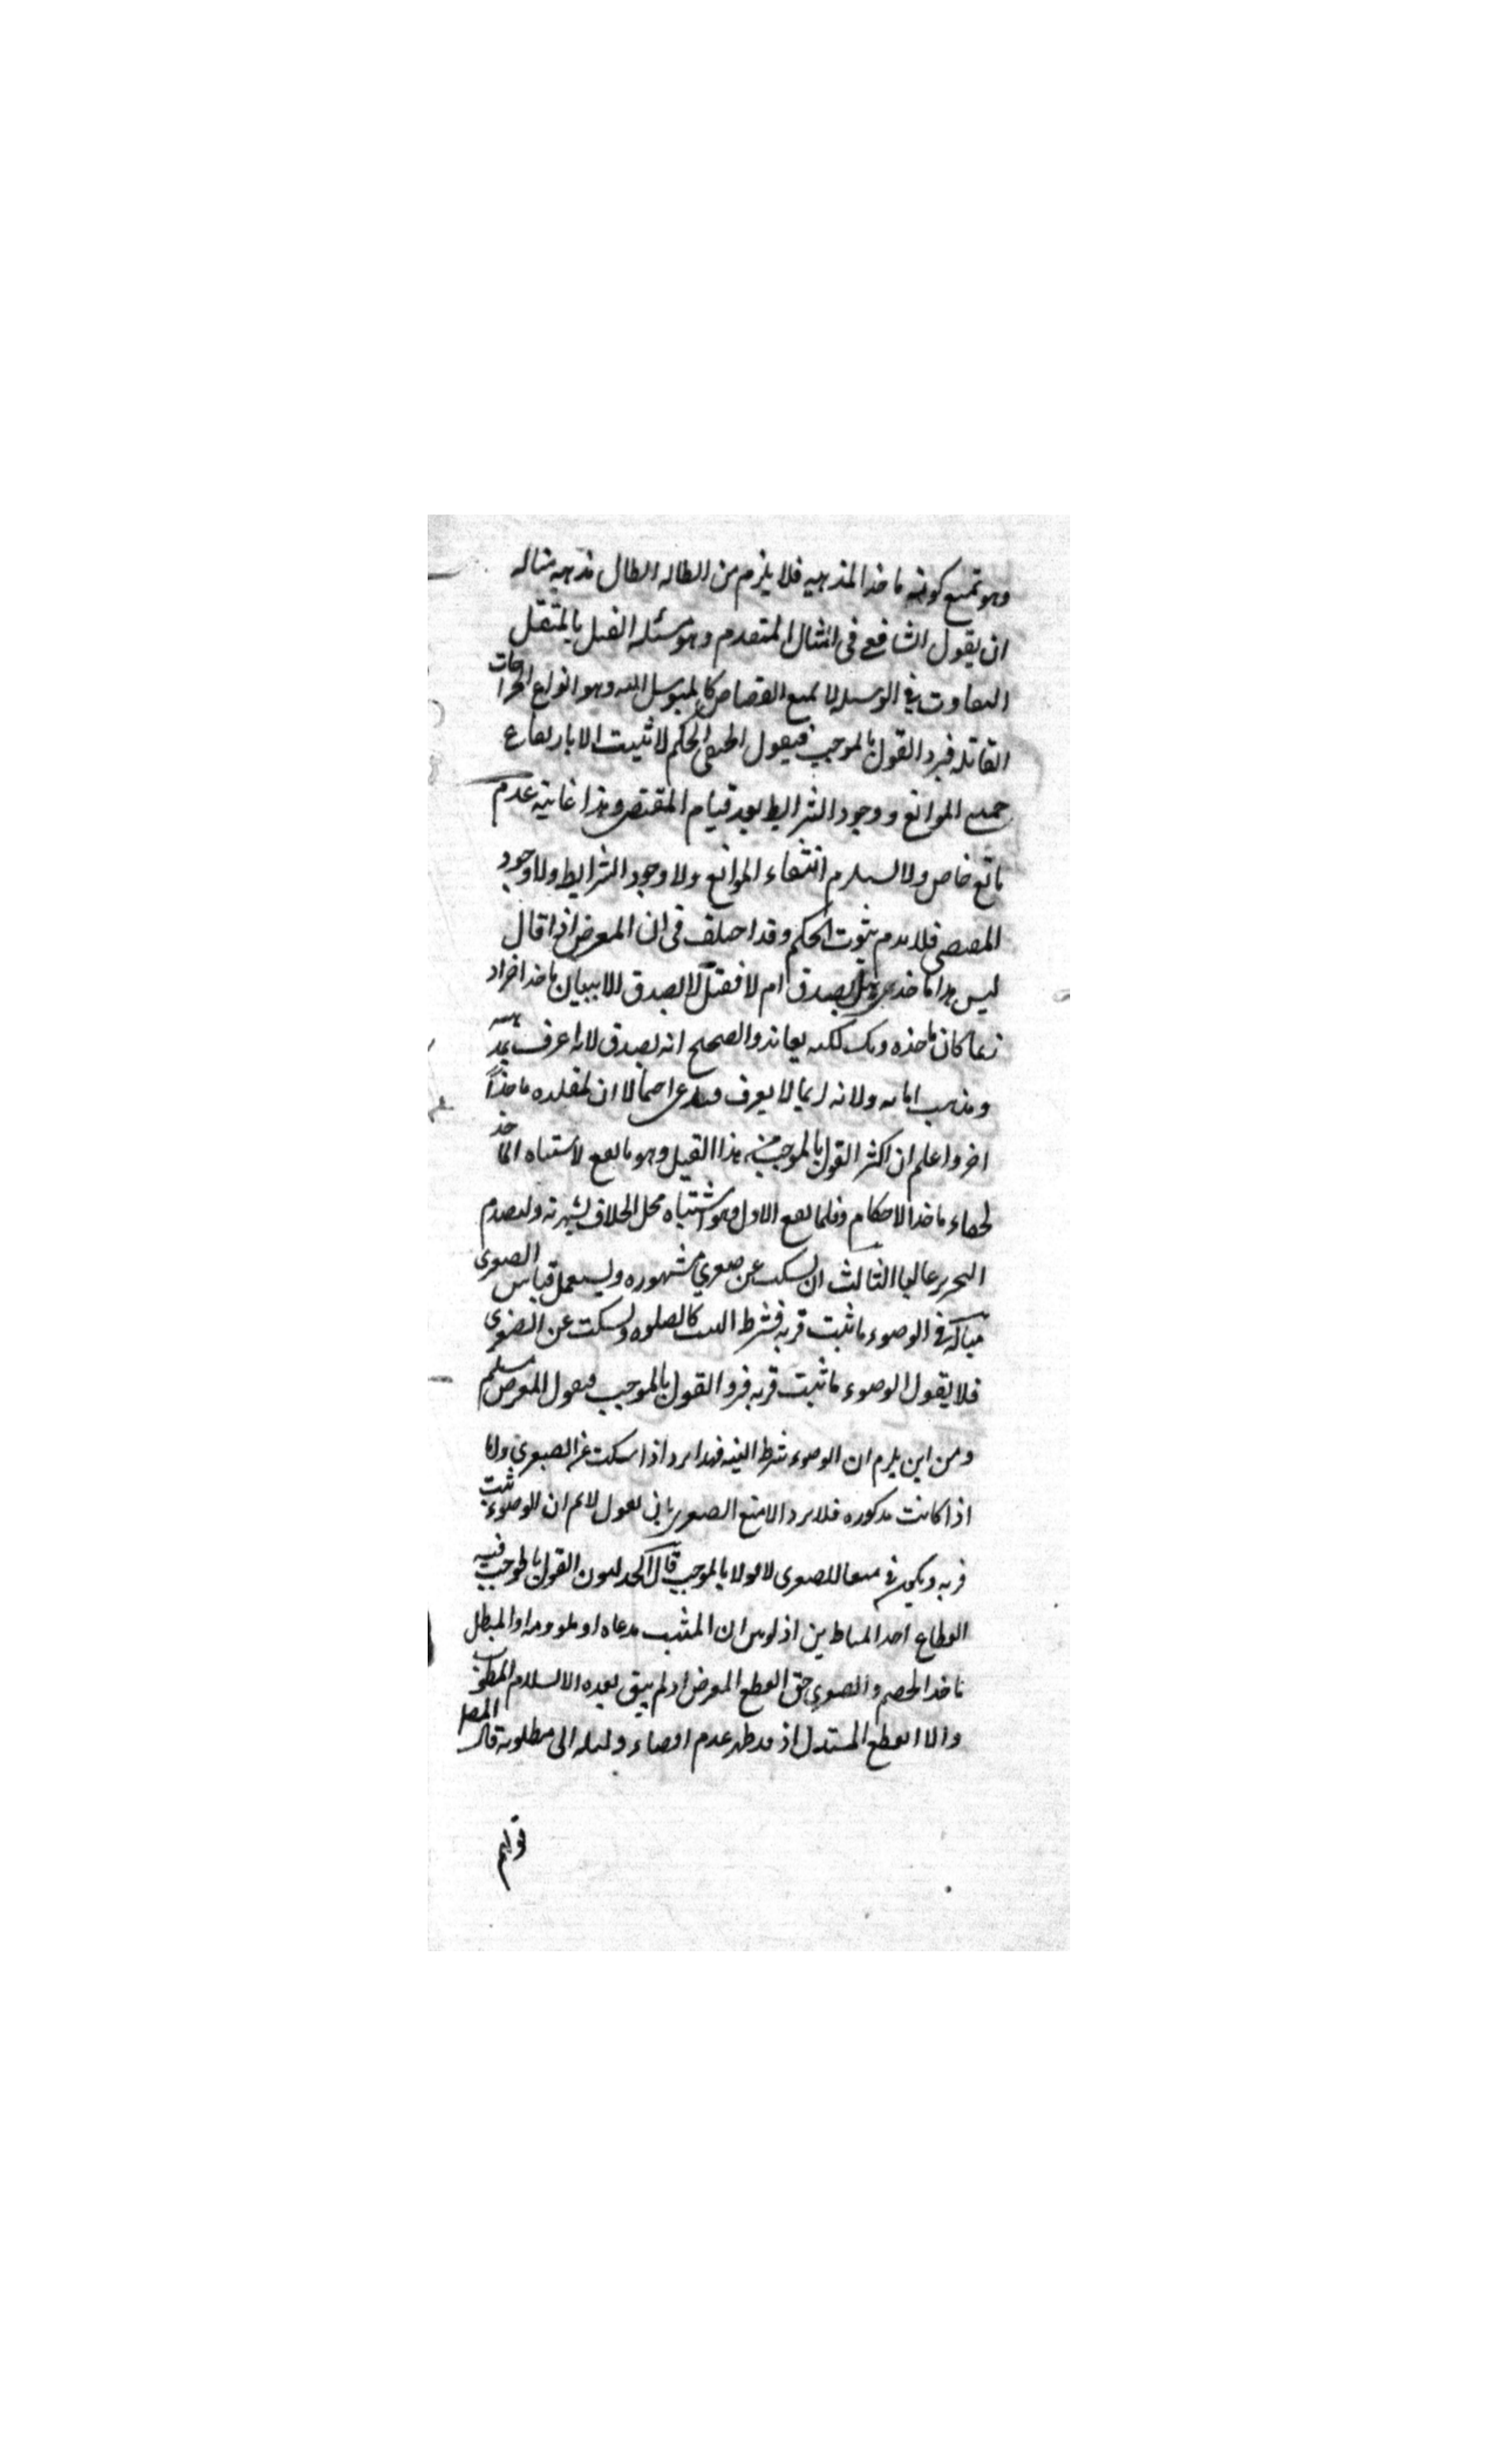 وهو يمنع كونه ماخذا لمذهبه فلا يلزم من ابطاله ابطال مذهبه مثاله
ان يقول الشافعي في المثال المتقدم وهو مسئله القتل بالمثقل
التفاوت في الوسيله لا يمنع القصاص كالمتوسل اليه وهو انواع الجراحات
القاتله فيرد القول بالموجب فيقول الحنفي الحكم لا يثبت الا بارتفاع
جميع الموانع ووجود الشرايط بعد قيام المقتضى وهذا غايته عدم
مانع خاص ولا يستلزم انتفاء الموانع ولا وجود الشرايط ولا وجود
المقتضى فلا يلزم ثبوت الحكم وقد اختلف في ان المعترض اذا قال
ليس هذا ماخذي هل يصدق ام لا فقيل لا يصدق الا ببيان ماخذ اخر اذ
ربما كان ماخذه ذلك لكنه يعاند والصحيح انه يصدق لانه اعرف بمذهبه
ومذهب امامه ولانه ربما لا يعرف فيدعي احتمالا ان لمقلده ماخذا
اخر واعلم ان اكثر القول بالموجب من هذا القبيل وهو ما يقع لاشتباه الماخذ
لخفاء ماخذ الاحكام وقلما يقع الاول وهو اشتباه محل الخلاف لشهرته ولتقدم
التحرير غالبا الثالث ان يسكت عن صغرى مشهوره ويستعمل قياس الضمير
مثاله في الوضوء ما ثبت قربه فشرطه النيه كالصلوه ويسكت عن الصغرى
فلا يقول الوضوء ما ثبت قربه فيرد القول بالموجب فيقول المعترض مسلم
ومن اين يلزم ان الوضوء شرطه النيه فهذا يرد اذا سكت عن الصغرى واما
اذا كانت مذكوره فلا يرد الا منع الصغرى بان يقول لا نم ان الوضوء ثبت
قربه ويكون منعا للصغرى لا قولا بالموجب قال الجدليون القول بالموجب فيه
انقطاع احد المتناظرين اذ لو بين ان المثبت مدعاه او ملزومه او المبطل
ماخذ الخصم والصغرى حق انقطع المعترض اذ لم يبق بعده الا تسليم المطلوب
والا انقطع المستدل اذ قد ظهر عدم افضاء دليله الى مطلوبه قال المص
قولهم